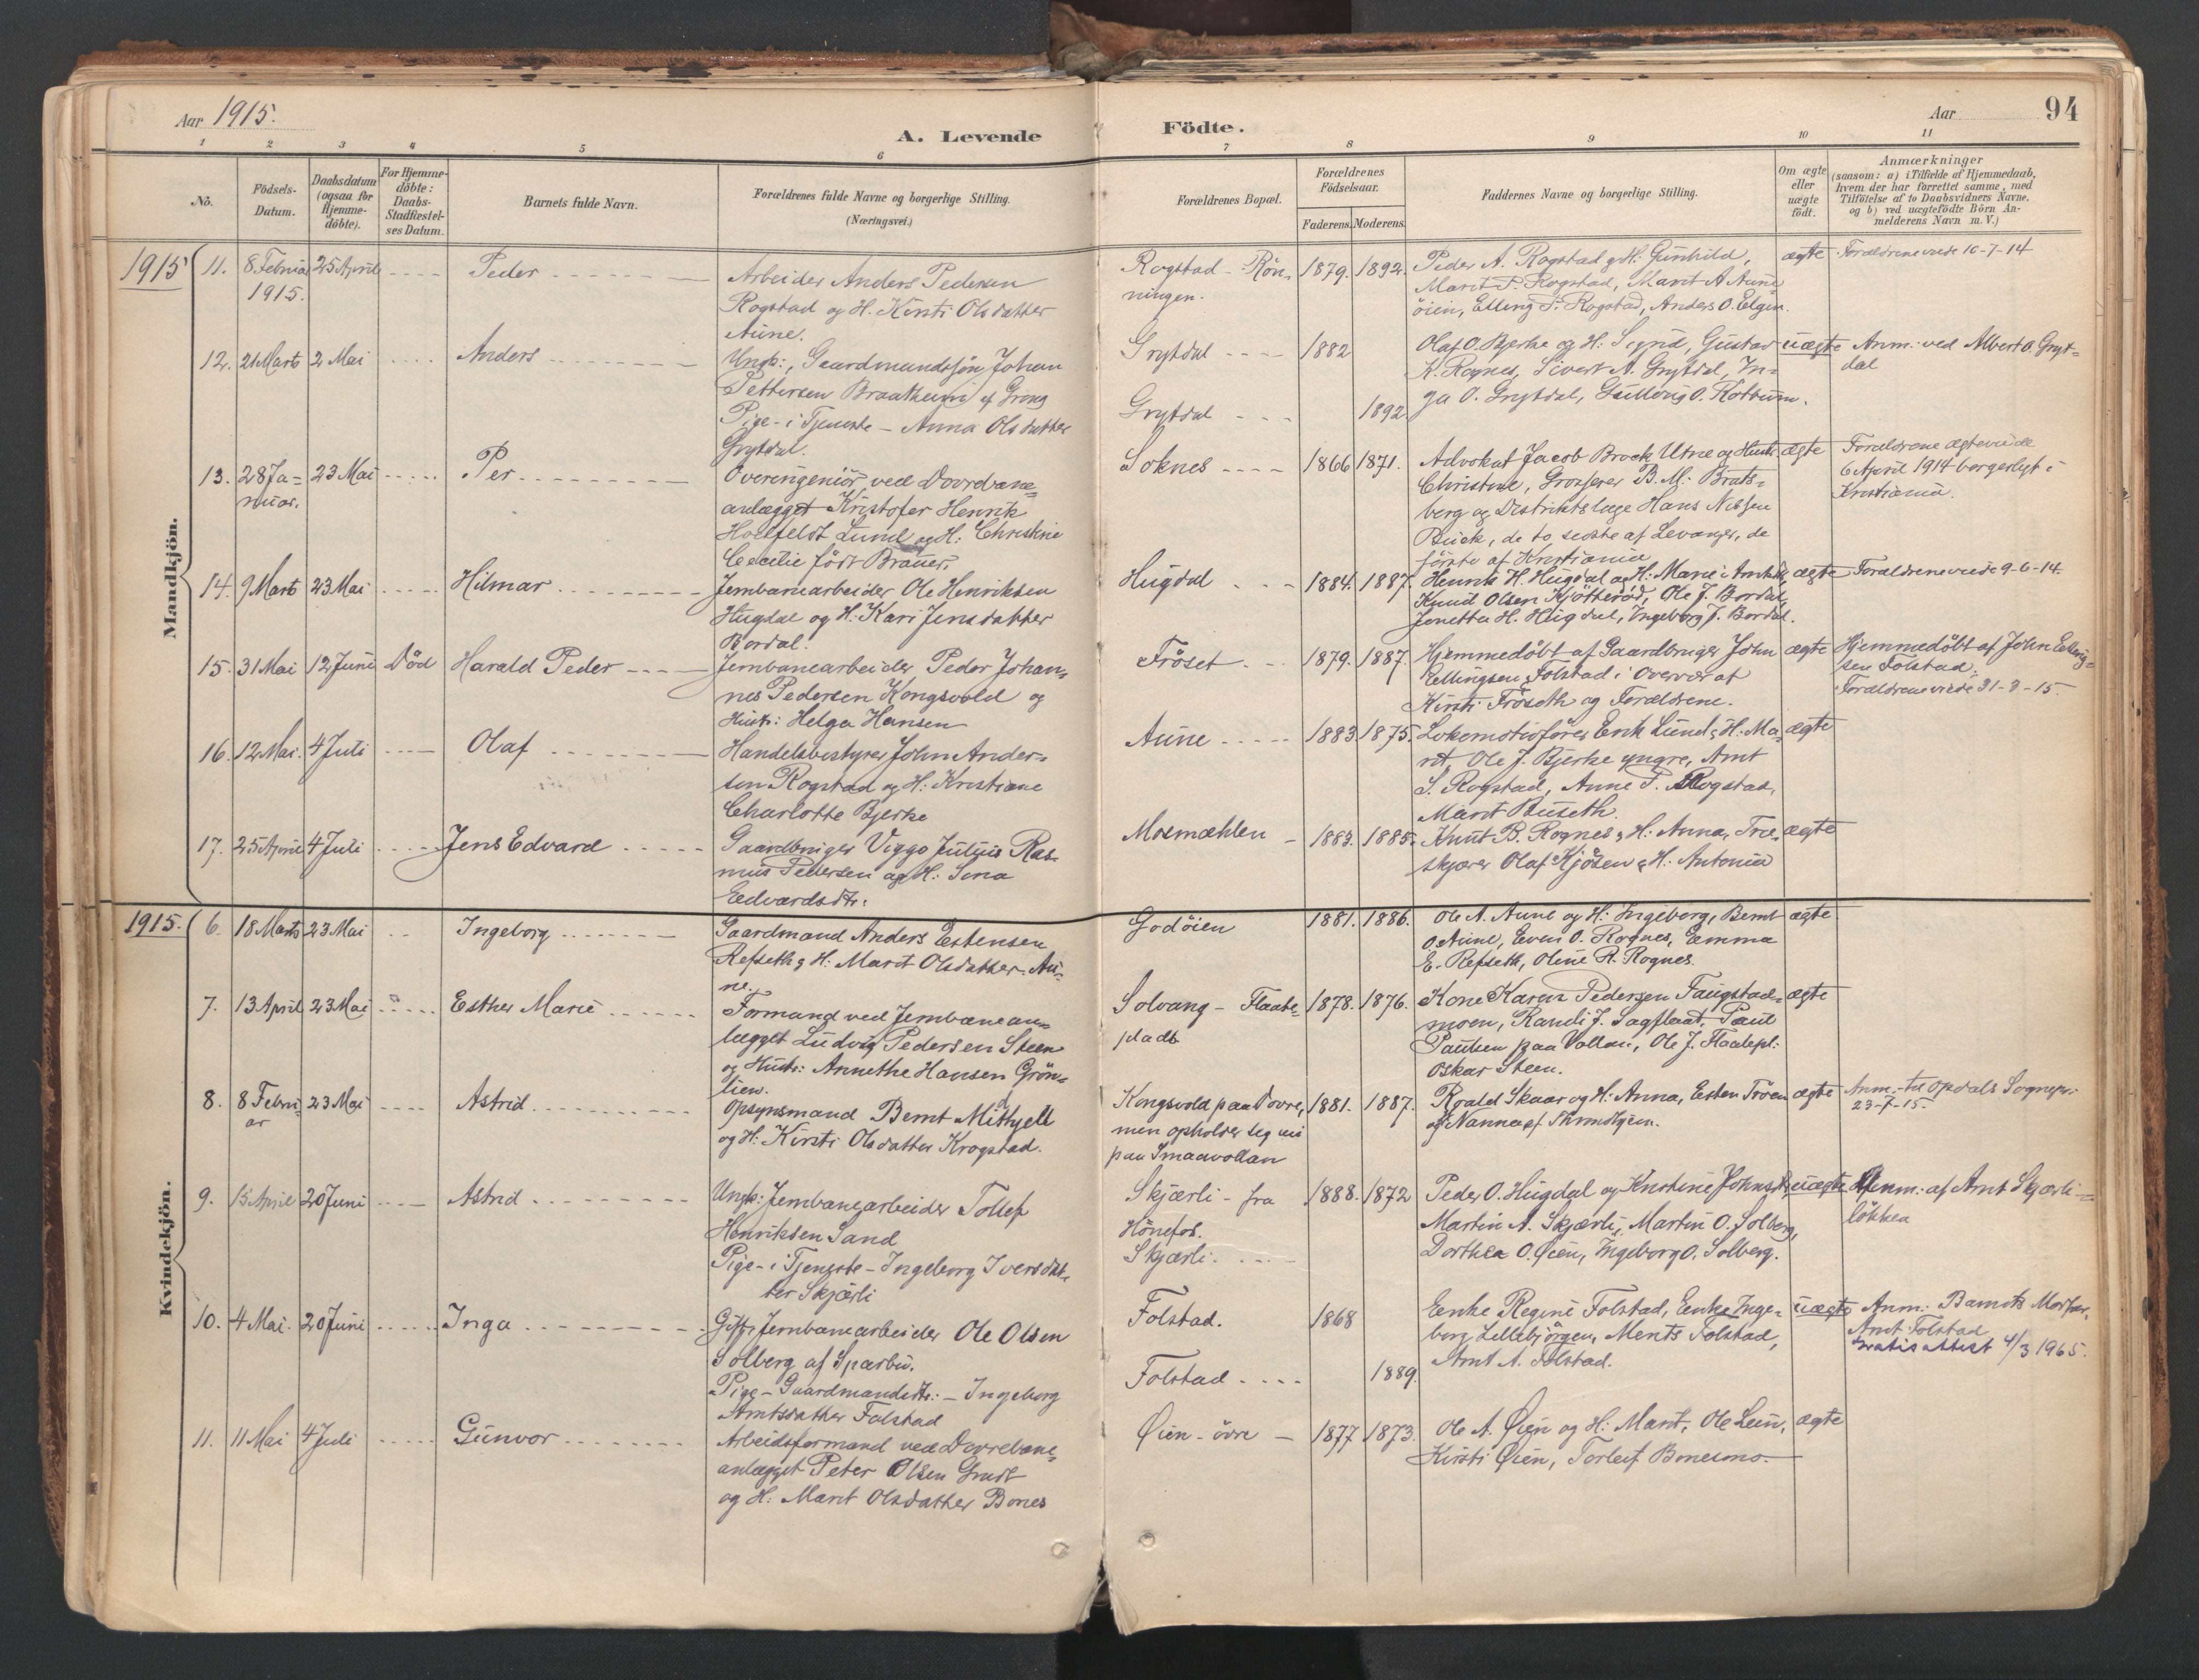 Aar 1915.
A. Levende
Födte.
Aar
94
1 2 3 4 5 6 7 8 9 10 11
No.
Födsels-
Datum.
Daabsdatum
(ogsaa for
Hjemme-
döbte).
For Hjemme-
döbte:
Daabs-
Stadfæstel-
ses Datum.
Barnets fulde Navn.
Forældrenes fulde Navne og borgerlige Stilling.
(Næringsvei.)
Forældrenes Bopæl.
Forældrenes
Födselsaar.
Faderens. Moderens.
Faddernes Navne og borgerlige Stilling.
Om ægte
eller
uægte
födt.
Anmærkninger
(saasom: a) i Tilfælde af Hjemmedaab,
hvem der har forrettet samme, med
Tilföielse af to Daabsvidners Navne,
og b) ved uægtefödte Börn An-
melderens Navn m. V.)
Mandkjön.
1915
11. 8 Februar
1915.
25 April
Peder
Arbeider Anders Pedersen
Rogstad og H. Kirsti Olsdatter
Aune.
Rogstad - Rön-
ningen.
1879. 1892.
Peder A. Rogstad og H: Gunhild,
Marit P. Rogstad, Marit A Aune
öien, Elling P. Rogstad, Anders O. Elgen.
ægte
Forældrene viede 10-7-14
12. 21 Marts 2 Mai
Anders
Ungk:, Gaardmandssön Johan
Pettersen Braatheim af Grong
Pige - i Tjeneste - Anna Olsdatter
Grytdal.
Grytdal
1882
Grytdal
1892
Olaf O. Bjerke og H. Sigrid, Gustav
K. Rognes, Sivert A. Grytdal, In-
ga O. Grytdal, Gullaug O. Kotsum.
uægte
Anm: ved Albert O. Gryt-
dal
13. 28 Ja-
nuar.
23 Mai
Per
Overingeniör ved Dovrebane-
anlægget Kristofer Henrik
Holtfeldt Lund og H: Christine
Cecilie födt Brauer.
Soknes
1866 1871.
Advokat Jacob Brock Utne og Hustr
Christine, Grosserer B. M. Brats-
berg og Distriktslæge Hans Nissen
Buck, de to sidste af Levanger, de
förste af Kristiania
ægte
Forældrene ægteviede
6 April 1914 borgerligt i
Kristiania.
14. 9 Marts 23 Mai
Hilmar
Jernbanearbeider Ole Henriksen
Hugdal og H: Kari Jensdatter
Bordal.
Hugdal
1884. 1887.
Henrik H. Hugdal og H: Marie,
Knud Olsen Kjötteröd, Ole J. Bordal,
Jonetta H. Hugdal, Ingeborg J. Bordal.
ægte
Forældrene viede 9-6-14
15. 31 Mai 12 Juni Död
Harald Peder
Jernbanearbeider Peder Johan-
nes Pedersen Kongsvold og
Hustr: Helga Hansen
Fröset
1879. 1887.
Hjemmedöbt af Gaardbruger John
Ellingsen Folstad i Overvær af
Kirsti Fröseth og Forældrene.
ægte
Hjemmedöbt af John Elling-
sen Folstad.
Forældrene viede 31-3-15.
16. 12 Mai. 4 Juli
Olaf
Handelsbestyrer John Ander-
sen Rogstad og H: Kristiane
Charlotte Bjerke
Aune
1883 1875.
Lokomotivförer Erik Lund & H: Ma-
rit, Ole J. Bjerke yngre, Arnt
S. Rogstad, Anne P. Rogstad,
Marit Buseth.
ægte
17. 25 April 4 Juli
Jens Edvard
Gaardbruger Viggo Julius Ras-
mus Pedersen og H: Sina
Edvardsdtr:
Mosmæhlen
1883. 1885.
Knut B. Rognes & H: Anna, Træ-
skjærer Olaf Kjösen & H: Antonia
ægte
Kvindekjön.
1915.
6. 18 Marts 23 Mai
Ingeborg
Gaardmand Anders Estensen
Refseth & H: Marit Olsdatter Au-
ne.
Godöien
1881. 1886.
Ole A. Aune og H: Ingeborg, Bernt
O. Aune, Even O. Rognes, Emma
E. Refseth, Oline R. Rognes.
ægte
7. 13 April 23 Mai
Esther Marie
Formand ved Jernbanean-
lægget Ludvig Pedersen Steen
og Hustr: Annethe Hansen Grön-
lien.
Solvang - Flaate-
plads
1878. 1876.
Kone Karen Pedersen Faugstad-
moen, Randi J. Sagflaat, Paul
Paulsen paa Vollan, Ole J. Flaatepl:
Oskar Steen.
ægte
8. 8 Febru-
ar
23 Mai
Astrid
Opsynsmand Bernt Mittyell
og H: Kirsti Olsdatter Krogstad.
Kongsvold paa Dovre,
men opholder sig nu
paa Smaavollan
1881. 1887.
Roald Skaar og H: Anna, Esten Tröen
og Nanna af Throndhjem.
ægte
Anm: til Opdals Sognepr:
23-7-15.
9. 15 April 20 Juni
Astrid
Ungk: Jernbanearbeider Tollef
Henriksen Sand
Pige - i Tjeneste - Ingeborg Iversdat-
ter Skjærli
Skjærli - fra
Hönefos.
Skjærli.
1888. 1872
Peder O. Hugdal og Kirstine Johnsdtr,
Martin A. Skjærli, Martin O. Solberg,
Dorthea O. Øien, Ingeborg O. Solberg.
uægte
Anm: af Arnt Skjærli-
lökken
10. 4 Mai. 20 Juni
Inga
Gift Jernbanearbeider Ole Olsen
Solberg af Sparbu.
Pige - Gaardmandsdtr: - Ingeborg
Arntsdatter Folstad
Folstad.
1868
Folstad
1889.
Enke Regine Folstad, Enke Inge-
borg Lillebjörgen, Ments Folstad,
Arnt A. Folstad.
uægte
Anm: Barnets Morfar,
Arnt Folstad
Gratisattest 4/3 1965.
11. 11 Mai 4 Juli
Gunvor
Arbeidsformand ved Dovrebane-
anlægget Peter Olsen Grudt
og H: Marit Olsdatter Bones
Øien - övre
1877 1873.
Ole A. Øien og H: Marit, Ole Lein,
Kirsti Øien, Torleif Bonesmo.
ægte